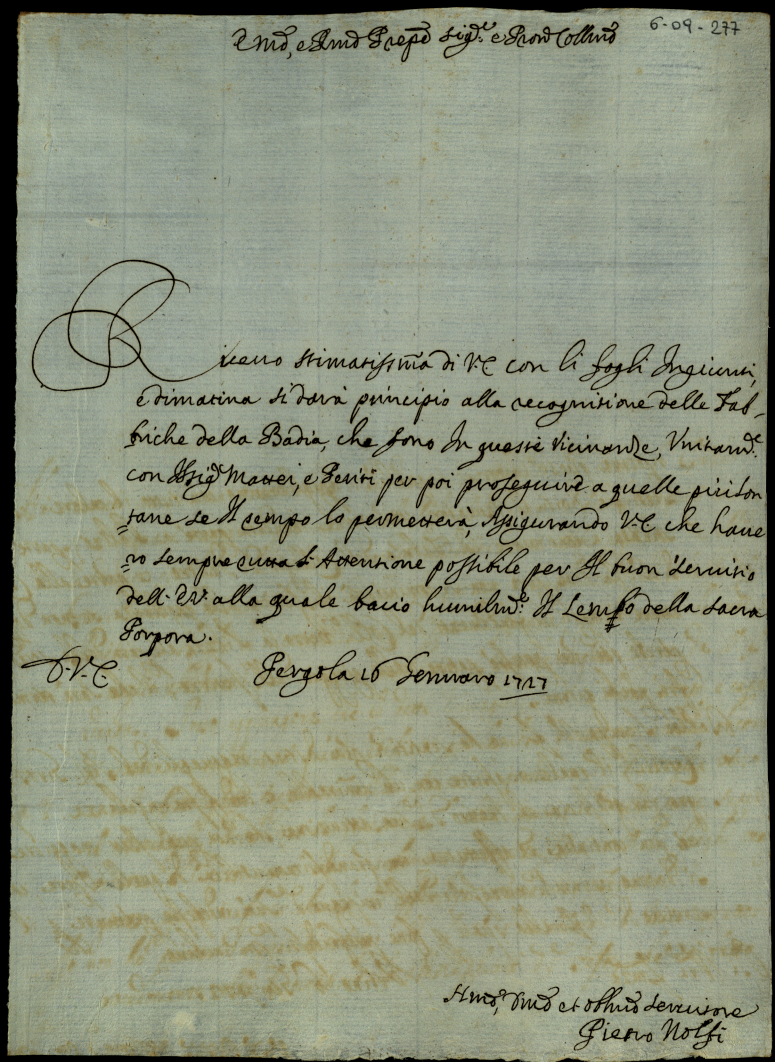 6-09-277
Emo, e Rmo Prepo Sigre e Prone Collmo
Riceuo stimatissma di V.E. con li fogli Ingiunti,
e dimatina si darà principio alla recognitione delle Fab-
briche della Badia, che sono In queste Vicinanze, Unitamte
con Il Sigr Mattei, e Periti per poi proseguire a quelle più lon-
tane se Il tempo lo permetterà, Assigurando V.E. che haue-
rò sempre tutta l'Attentione possibile per Il buon seruitio
dell'E.V. alla quale bacio humilmte Il Lembo della Sacra
Porpora.
D.V.E. Pergola 16 Gennaro 1727
Hmo, Dmo et obblmo Seruitore
Pietro Nolfi